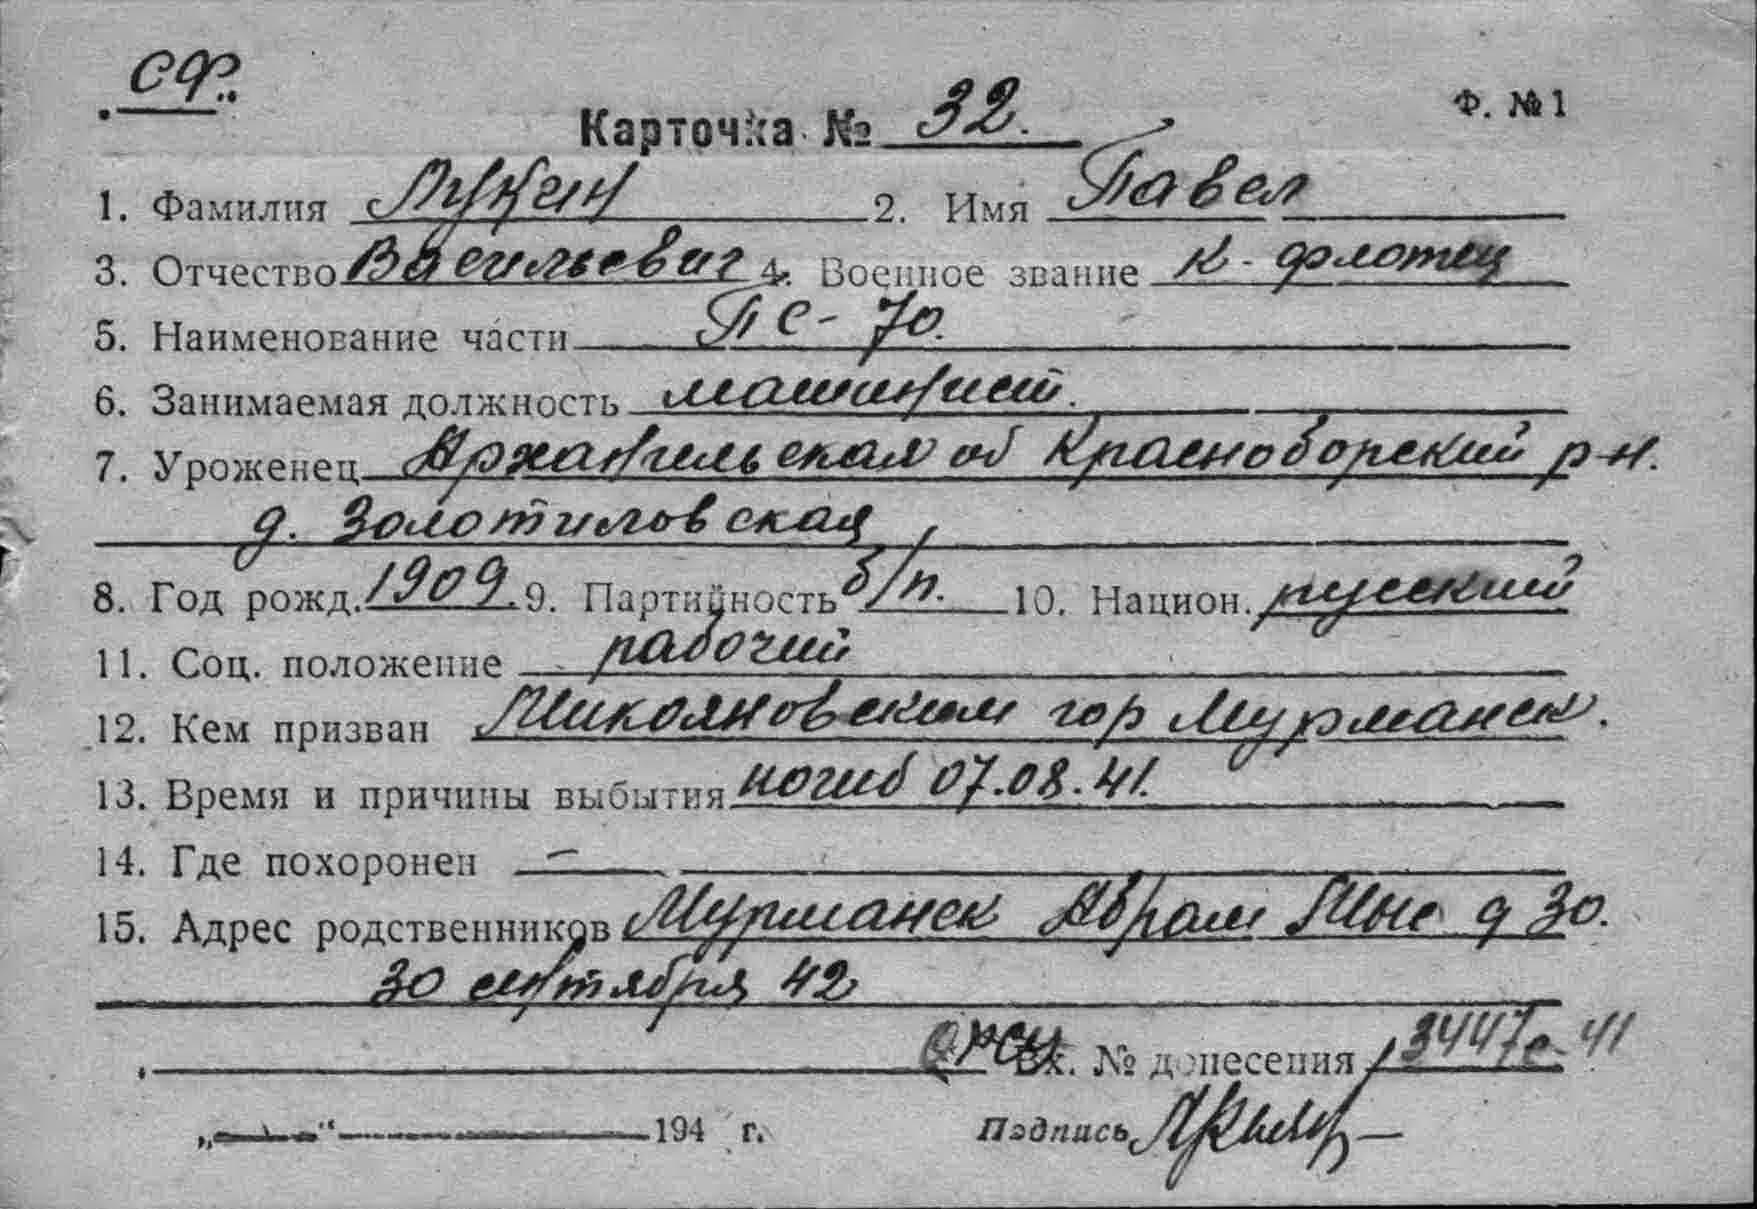 СФ.
Карточка № 32. Ф. № 1
1. Фамилия Лукин 2. Имя Павел
3. Отчество Васильевич 4. Военное звание к-флотец
5. Наименование части ПС-70.
6. Занимаемая должность машинист.
7. Уроженец Архангельская об Красноборский р-н.
д. Золотиловская
8. Год рожд. 1909. 9. Партийность б/п. 10. Национ. русский
11. Соц. положение рабочий
12. Кем призван Микояновским гор Мурманск.
13. Время и причины выбытия погиб 07.08.41.
14. Где похоронен —
15. Адрес родственников Мурманск Абрам Мыс д 30.
30 сентября 42
Вх. № донесения 3447с-41
„ “ 194 г. Подпись